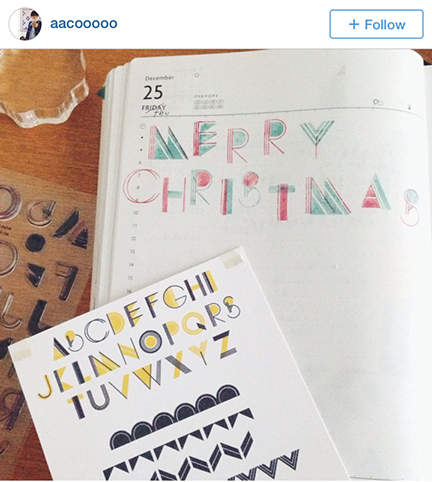 aacooooo
+ Follow
December
25
FRIDAY
MERRY
CHRISTMAS
10
11
12
13
14
15
ABCDEFGHI
JKLMNOPQRS
TUVWXYZ